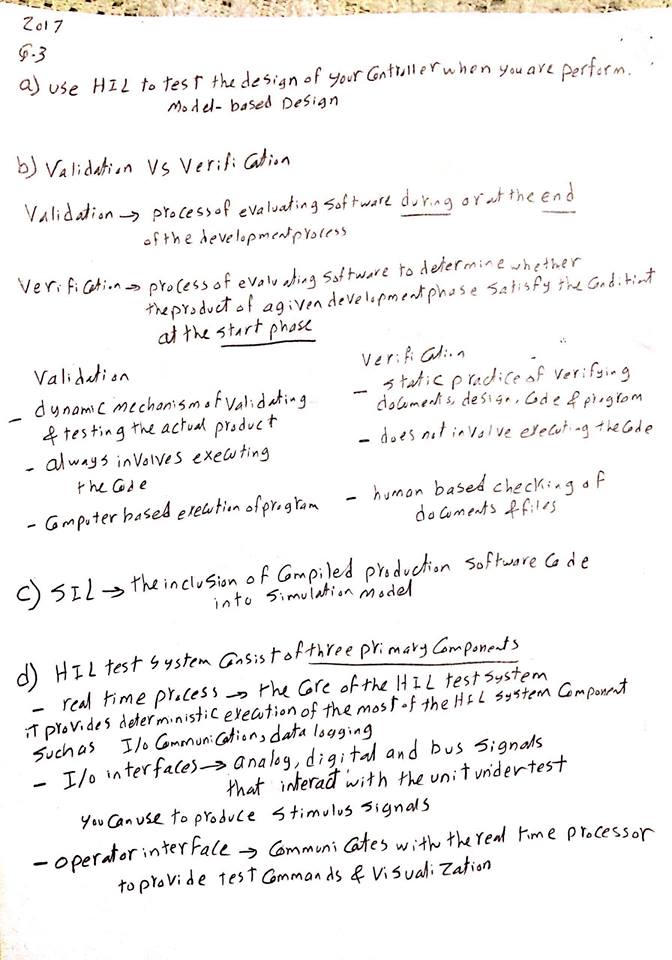 2017
Q.3
a) use HIL to test the design of your Controller when you are perform.
Model-based Design
b) Validation Vs Verification
Validation → process of evaluating software during or at the end
of the development process
Verification → process of evaluating software to determine whether
the product of a given development phase satisfy the
at the start phase
Validation
- dynamic mechanism of Validating
& testing the actual product
- always involves executing
the Code
- Computer based execution of program
Verification
- static practice of verifying
documents, design, Code & program
- does not involve executing the Code
- human based checking of
documents & files
c) SIL → the inclusion of Compiled production software Code
into simulation model
d) HIL test system Consist of three primary Components
- real time process → the Core of the HIL test system
it provides deterministic execution of the most of the HIL system Component
such as I/o Communication, data logging
- I/o interfaces → analog, digital and bus signals
that interact with the unit under test
you Can use to produce stimulus signals
- operator interface → Communicates with the real time processor
to provide test Commands & Visualization